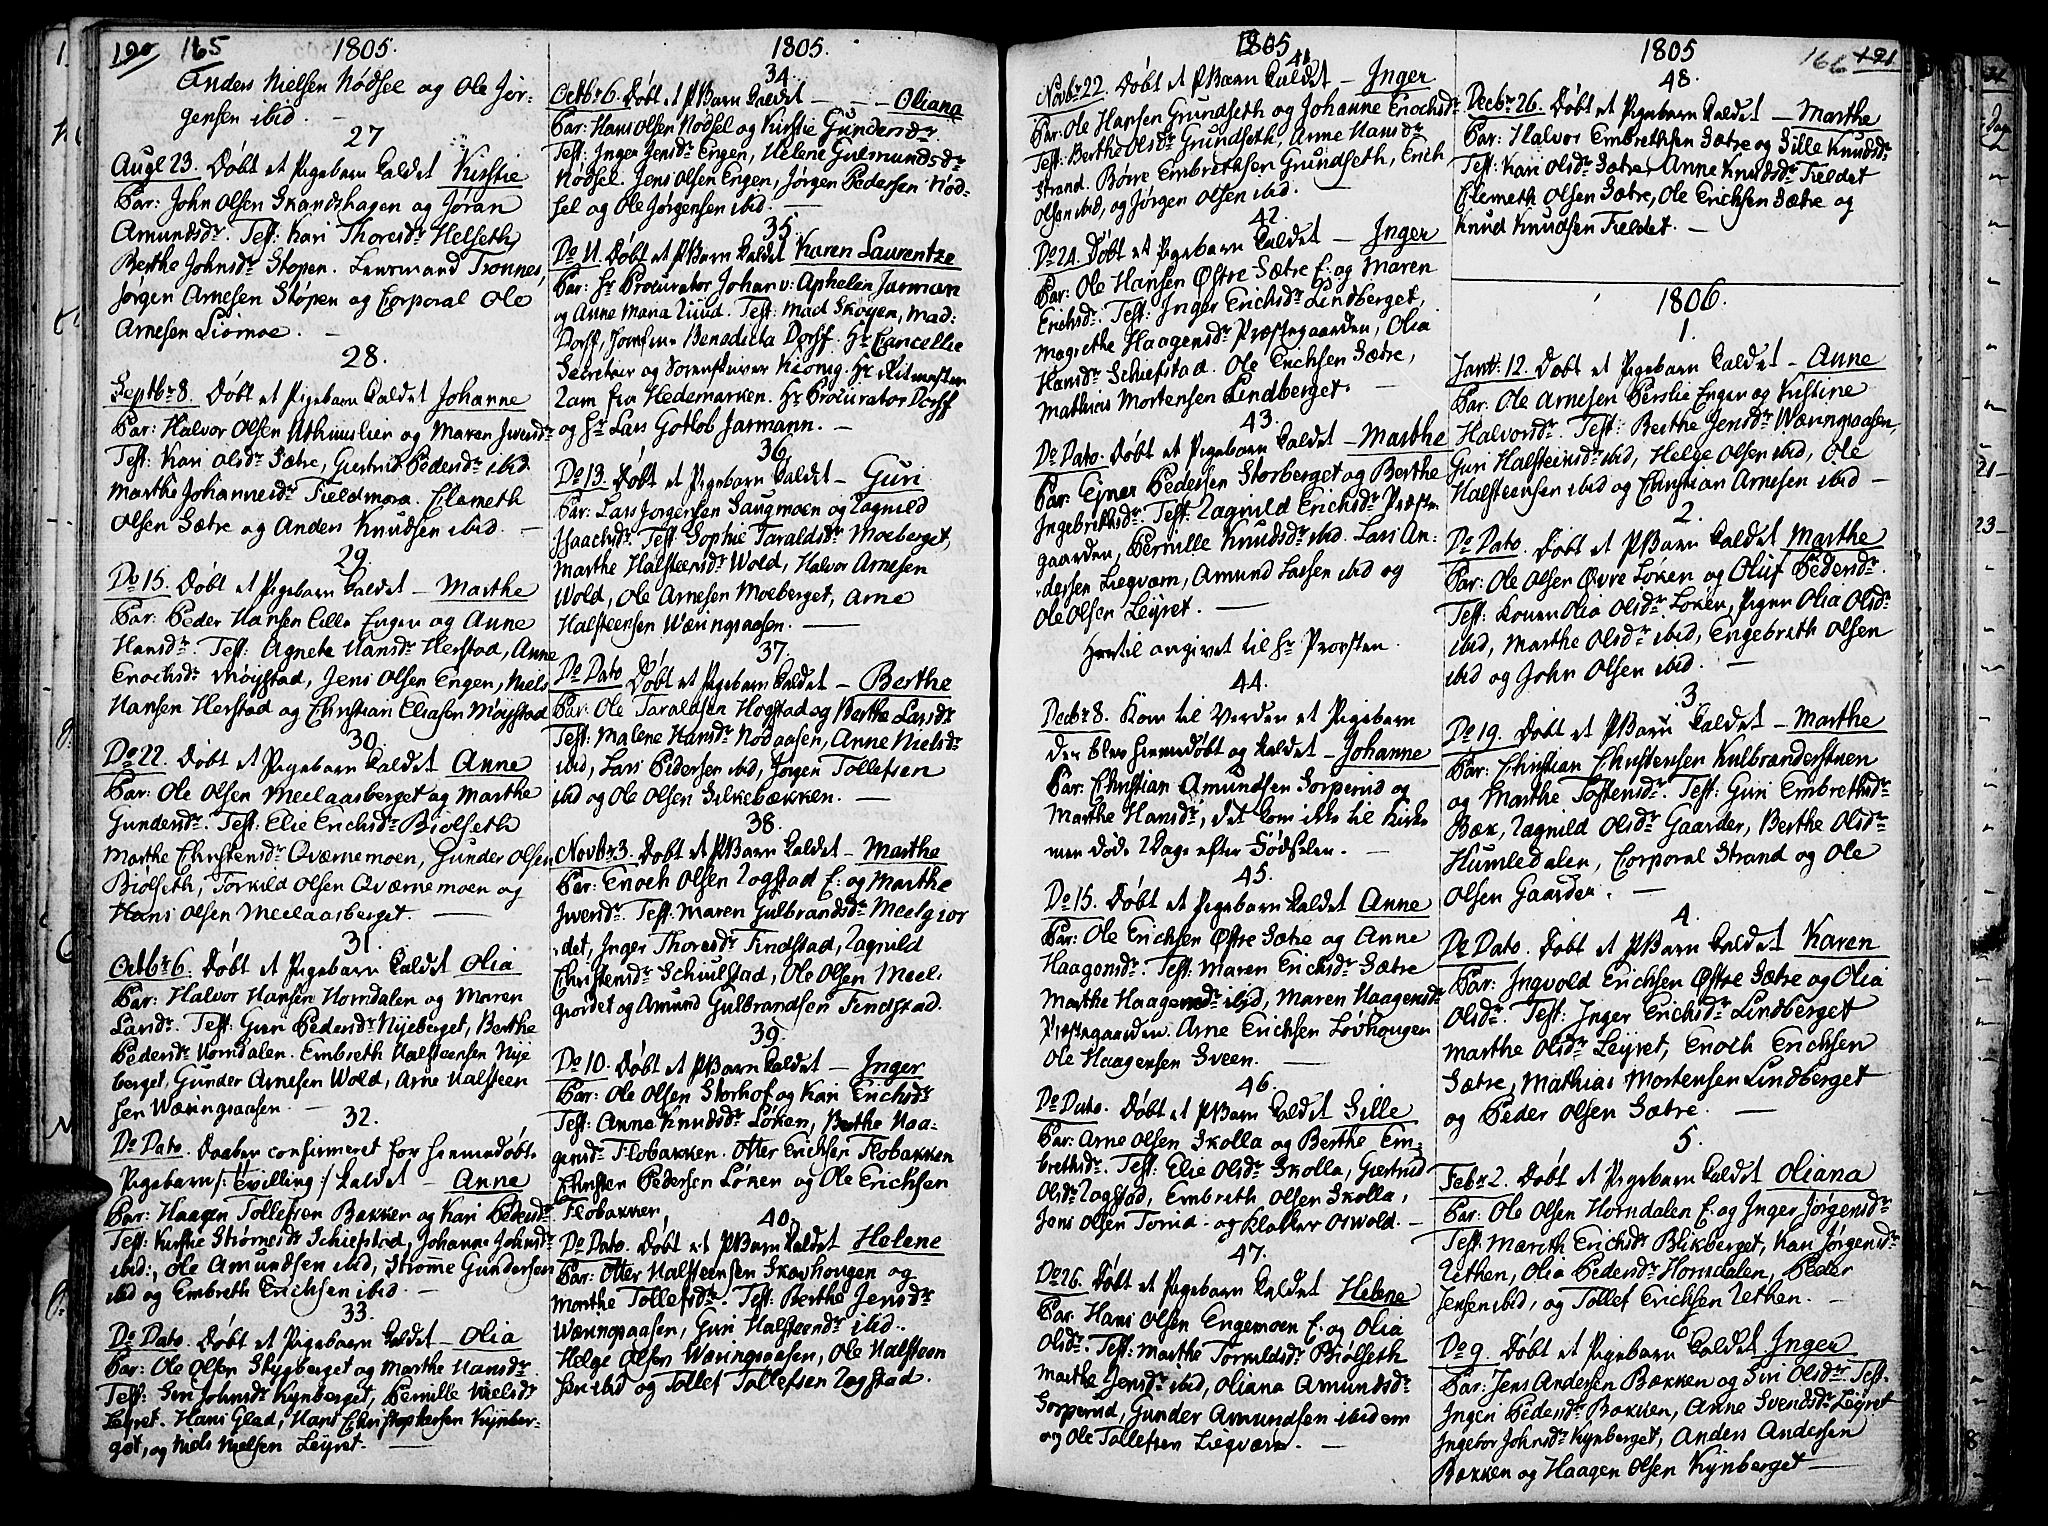 190 165 1805.
Anders Nielsen Nødsel og Ole Jør-
gensen ibid. -
27
Augl 23. Døbt et Pigebarn kaldet Kirstie
Par: John Olsen Skandshagen og Jøran
Amundsdr. Test: Kari Thoresdr Helseth,
Berthe Johnsdr Stopen. Lensmand Tronnes,
Jørgen Arnesen Støpen og Corporal Ole
Arnesen Liørmoe. -
28.
Septbr 8. Døbt et Pigebarn kaldet Johanne
Par: Halvor Olsen og Maren Iversdr
Test: Kari Olsdr Sætre, Giertrud Pedersdr ibid.
Marthe Johannesdr Fieldmora. Elameth
Olsen Sætre og Anders Knudsen ibid. -
29.
Do 15. Døbt et Pigebarn kaldet - Marthe
Par: Peder Hansen Lille Engen og Anne
Hansdr. Test: Agnete Hansdr Herstad, Anne
Enochsdr Møystad, Jens Olsen Engen, Niels
Hansen Herstad og Christian Eliasen Møystad
30.
Do 22. Døbt et Pigebarn kaldet Anne
Par: Ole Olsen Meelaasberget og Marthe
Gundersdr. Test: Elie Erichsdr Biølseth
Marthe Christensdr Qværnemoen, Gunder Olsen
Biølseth, Torkild Olsen Qværnemoen og
Hans Olsen Meelaasberget. -
31.
Octbr 6. Døbt et Pigebarn kaldet Olia
Par: Halvor Hansen Horndalen og Maren
Larsdr. Test: Guri Pedersdr Nyeberget, Berthe
Pedersdr Horndalen. Embreth Halsteensen Nye
berget, Gunder Arnesen Wold, Arne Halsteen
sen Wæringsaasen. -
32.
Do Dato. Daaben confirmeret for hiemmedøbt
Pigebarn /: Tvilling :/ kaldet - Anne
Par: Haagen Tollefsen Bakken og Kari Pedersdr
Test: Kirstie Strømesdr Schiefstad, Johanne Johnsdr
ibid:, Ole Amundsen ibid, Strøme Gundersen
ibid og Embreth Erichsen ibid. -
33.
Do Dato. Døbt et Pigebarn kaldet - Olia
Par: Ole Olsen Stygberget og Marthe Hansdr.
Test: Siri Johnsdr Kynberget, Pernille Nielsdr
Leyret. Hans Glad, Hans Christophersen Kynber-
get, og Niels Nielsen Leyret. -
1805.
34.
Octbr 6. Døbt et PBarn kaldet - - Oliana
Par: Hans Olsen Nødsel og Kirstie Gundersdr
Test: Inger Jensdr Engen, Helene Gulmundsdr
Nødsel. Jens Olsen Engen, Jørgen Pedersen Nød-
sel og Ole Jørgensen ibid. -
35.
Do 11. Døbt et PBarn kaldet Karen Laurentze
Par: Hr Procurator Johan v: Aphelen Jarman
og Anne Maria Ruud. Test: Mad Skogen, Mad:
Dorff, Jomfrue Benedicta Dorff. Hr Cancellie
Secretair og Sorenskriver Kiønig. Hr Ritmester
Ram fra Hedemarken. Hr Procurator Dorff
og Hr Lars Gotlob Jarmann. -
36.
Do 13. Døbt et Pigebarn kaldet - Guri
Par: Lars Jørgensen Saugmoen og Ragnild
Isaachsdr. Test: Sophie Taraldsdr Moeberget,
Marthe Halsteensdr Wold, Halvor Arnesen
Wold, Ole Arnesen Moeberget, Arne
Halsteensen Wæringsaasen. -
37.
Do Dato Døbt et Pigebarn kaldet - Berthe
Par: Ole Taraldsen Hogstad og Berthe Larsdr
Test: Malene Hansdr Nodaasen, Anne Nielsdr
ibid, Lars Pedersen ibid, Jørgen Tollefsen
ibid og Ole Olsen Silkebækken. -
38.
Novbr 3. Døbt et PBarn kaldet - Marthe
Par: Enoch Olsen Rogstad E: og Marthe
Iversdr. Test: Maren Gulbrandsdr Meelgior
det, Inger Thoresdr Findstad, Ragnild
Christensdr Schiulstad, Ole Olsen Meel-
giordet og Amund Gulbrandsen Findstad.
39.
Do 10. Døbt et PBarn kaldet - Inger
Par: Ole Olsen Storhof og Kari Erichsdr
Test: Anne Knudsdr Løken, Berthe Haa-
gensdr Flobakken. Otter Erichsen Flobakken
Christen Pedersen Løken og Ole Erichsen
Flobakken
40.
Do Dato. Døbt et PBarn kaldet Helene
Par: Otter Halsteensen Skovhougen og
Marthe Tollefsdr. Test: Berthe Jensdr
Wæringsaasen, Guri Halsteensdr ibid.
Helge Olsen Wæringsaasen, Ole Halsteen
sen ibid og Tollef Tollefsen Rogstad.
1805
41
Novbr 22. Døbt et PBarn kaldet - Inger
Par: Ole Hansen Grundseth og Johanne Enochsdr
Test: Berthe Olsdr Grundseth, Anne Hansdr
Strand. Børre Embrethsen Grundseth, Erich
Olsen ibid, og Jørgen Olsen ibid.
42.
Do 24. Døbt et Pigebarn kaldet - Inger
Par: Ole Hansen Østre Sætre E. og Maren
Erichsdr. Test: Inger Erichsdr Lindberget,
Magrethe Haagensdr Præstegaarden, Olia
Hansdr Schiefstad. Ole Erichsen Sætre,
Mathias Mortensen Lindberget. -
43.
Do Dato. Døbt et Pigebarn kaldet - Marthe
Par: Ejner Pedersen Storberget og Berthe
Ingebrithsdr. Test: Ragnild Erichsdr Præste
gaarden, Pernille Knudsdr ibid. Lars An-
dersen Liegværn, Amund Larsen ibid og
Ole Olsen Leyret. -
Hertil angivet til Hr Provsten.
44.
Decbr 8. Kom til Verden et Pigebarn
der blev hiemmedøbt og kaldet - Johanne
Par: Christian Amundsen Sorperud og
Marthe Hansdr, det kom ikke til Kirke
men døde 2 Dage efter Fødselen. -
45.
Do 15. Døbt et Pigebarn kaldet Anne
Par: Ole Erichsen Østre Sætre og Anne
Haagensdr. Test: Maren Erichsdr Sætre
Marthe Haagensdr ibid, Maren Haagensdr
Præstegaarden. Arne Erichsen Løvhougen
Ole Haagensen Sveen. -
46.
Do Dato. Døbt et PBarn kaldet Sille
Par: Arne Olsen Skolla og Berthe Em-
brethsdr. Test: Elie Olsdr Skolla, Giertrud
Olsdr Rogstad, Embreth Olsen Skolla,
Jens Olsen Torud og Klokker Oswold. -
47.
Do 26. Døbt et Pigebarn kaldet Helene
Par: Hans Olsen Engemoen E. og Olia
Olsdr. Test: Marthe Torkildsdr Biølseth
Marthe Jensdr ibid, Oliana Amundsdr
Sorperud, Gunder Amundsen ibidem
og Ole Tollefsen Liegværn. -
1805 166 191
48.
Decbr 26. Døbt et Pigebarn kaldet - Marthe
Par: Halvor Embrethsen Sætre og Sille Knudsdr
Test: Kari Olsdr Sætre, Anne Knudsdr Fieldet
Elemeth Olsen Sætre, Ole Erichsen Sætre og
Knud Knudsen Fieldet. -
1806.
1.
Janr: 12. Døbt et Pigebarn kaldet - Anne
Par: Ole Arnesen Perslie Engen og Kistine
Halvorsdr. Test: Berthe Jensdr Wæringsaasen,
Guri Halsteinsdr ibid, Helge Olsen ibid, Ole
Halsteensen ibid og Christian Arnesen ibid -
2.
Do Dato. Døbt et PBarn kaldet Marthe
Par: Ole Olsen Øvre Løken og Oluf Pedersdr.
Test: Konen Olia Olsdr Løken, Pigen Olia Olsdr
ibid, Marthe Olsdr ibid, Engebreth Olsen
ibid og John Olsen ibid. -
3.
Do 19. Døbt et PBarn kaldet - Marthe
Par: Christian Christensen Kulbranderstuen
og Marthe Tostensdr. Test: Guri Embrethsdr
Bæk, Ragnild Olsdr Gaarder, Berthe Olsdr
Humledalen, Corporal Strand og Ole
Olsen Gaarder. -
4.
Do Dato. Døbt et PBarn kaldet Karen
Par: Ingvold Erichsen Østre Sætre og Olia
Olsdr. Test: Inger Erichsdr Lindberget
Marthe Olsdr Leyret, Enoch Erichsen
Sætre, Mathias Mortensen Lindberget
og Peder Olsen Sætre. -
5.
Febr 2. Døbt et Pigebarn kaldet Oliana
Par: Ole Olsen Horndalen E. og Inger Jørgensdr
Test: Mærith Erichsdr Blikberget, Kari Jørgensdr
Rethen, Olia Pedersdr Horndalen, Peder
Jensen ibid, og Tollef Erichsen Rethen. -
6
Do 9. Døbt et Pigebarn kaldet Inger
Par: Jens Andersen Bakken og Siri Olsdr. Test.
Ingeri Pedersdr Bakken, Anne Svendsdr Leyret
Ingebor Johnsdr Kynberget, Anders Andersen
Bakken og Haagen Olsen Kynberget -